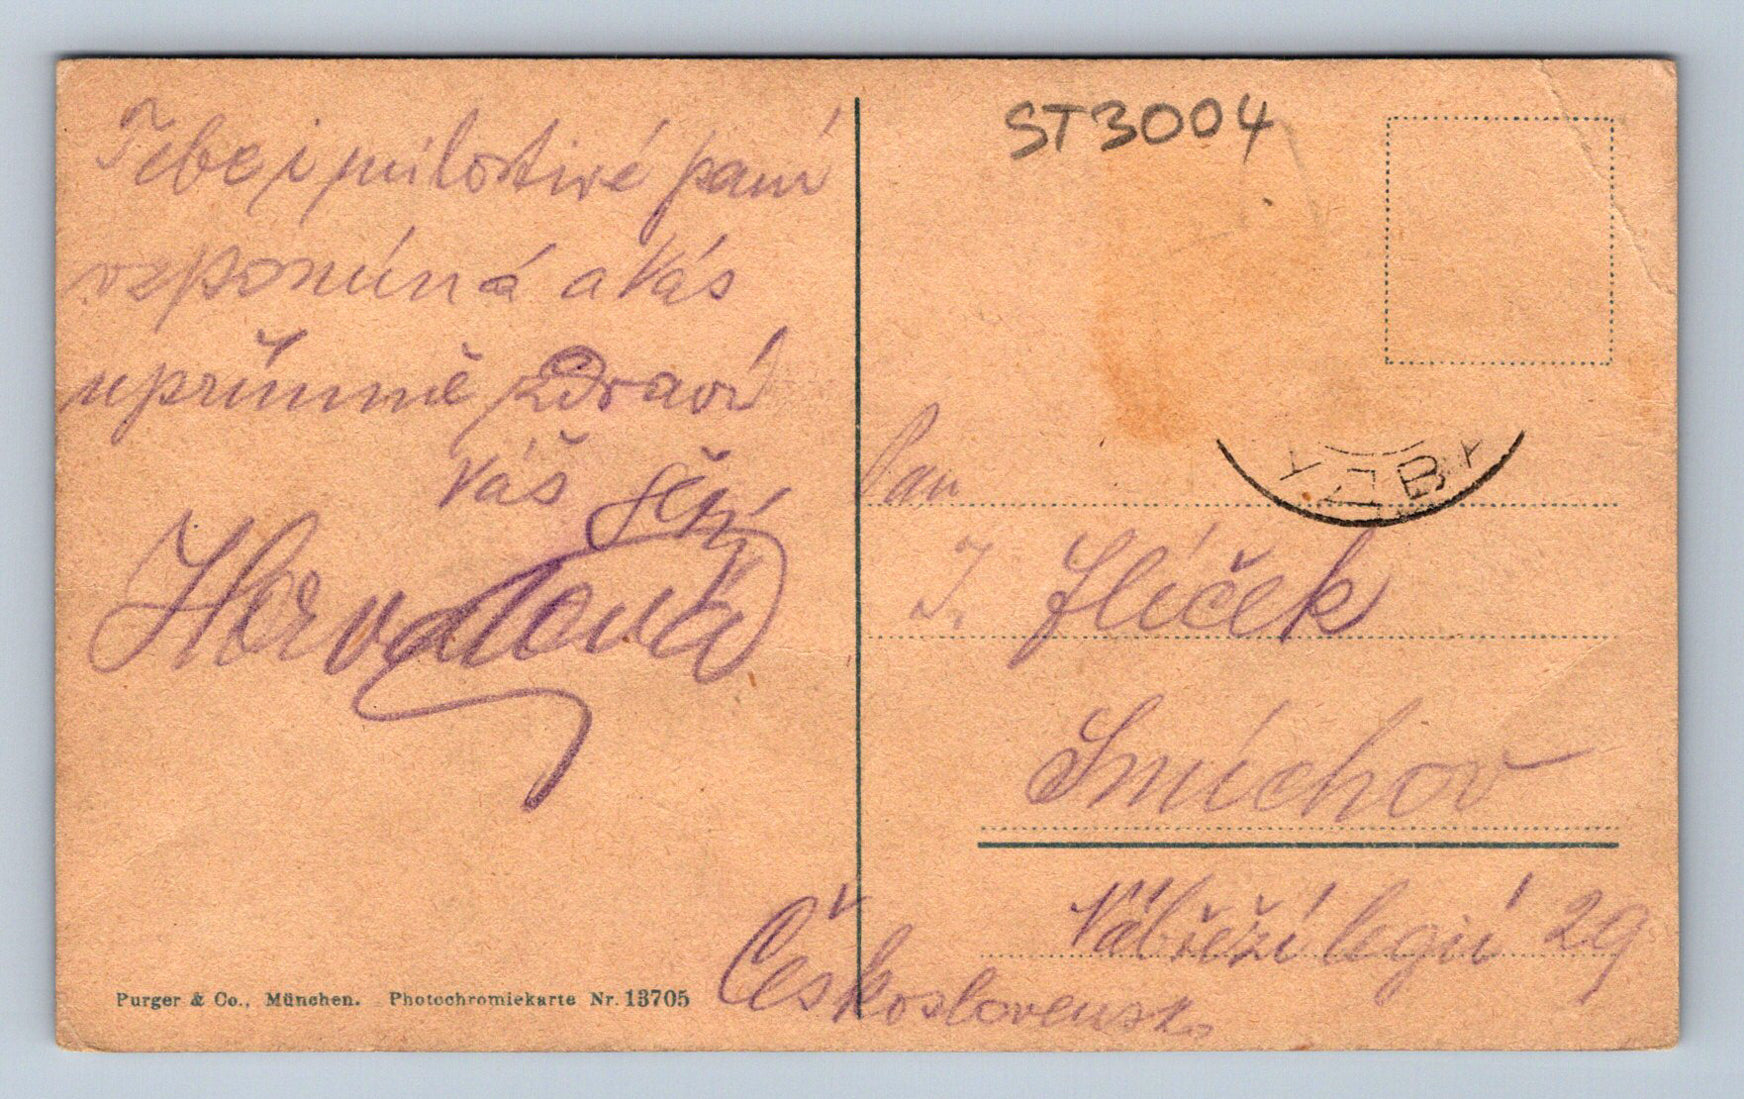 Tebe i milostivé paní
vzpomíná a Vás
upřímně zdraví
Váš
Horvatová
ST3004
Pan
J. Jlíček
Smíchov
Nábřeží legií 29
Československ.
Purger & Co., München. Photochromiekarte Nr. 13705